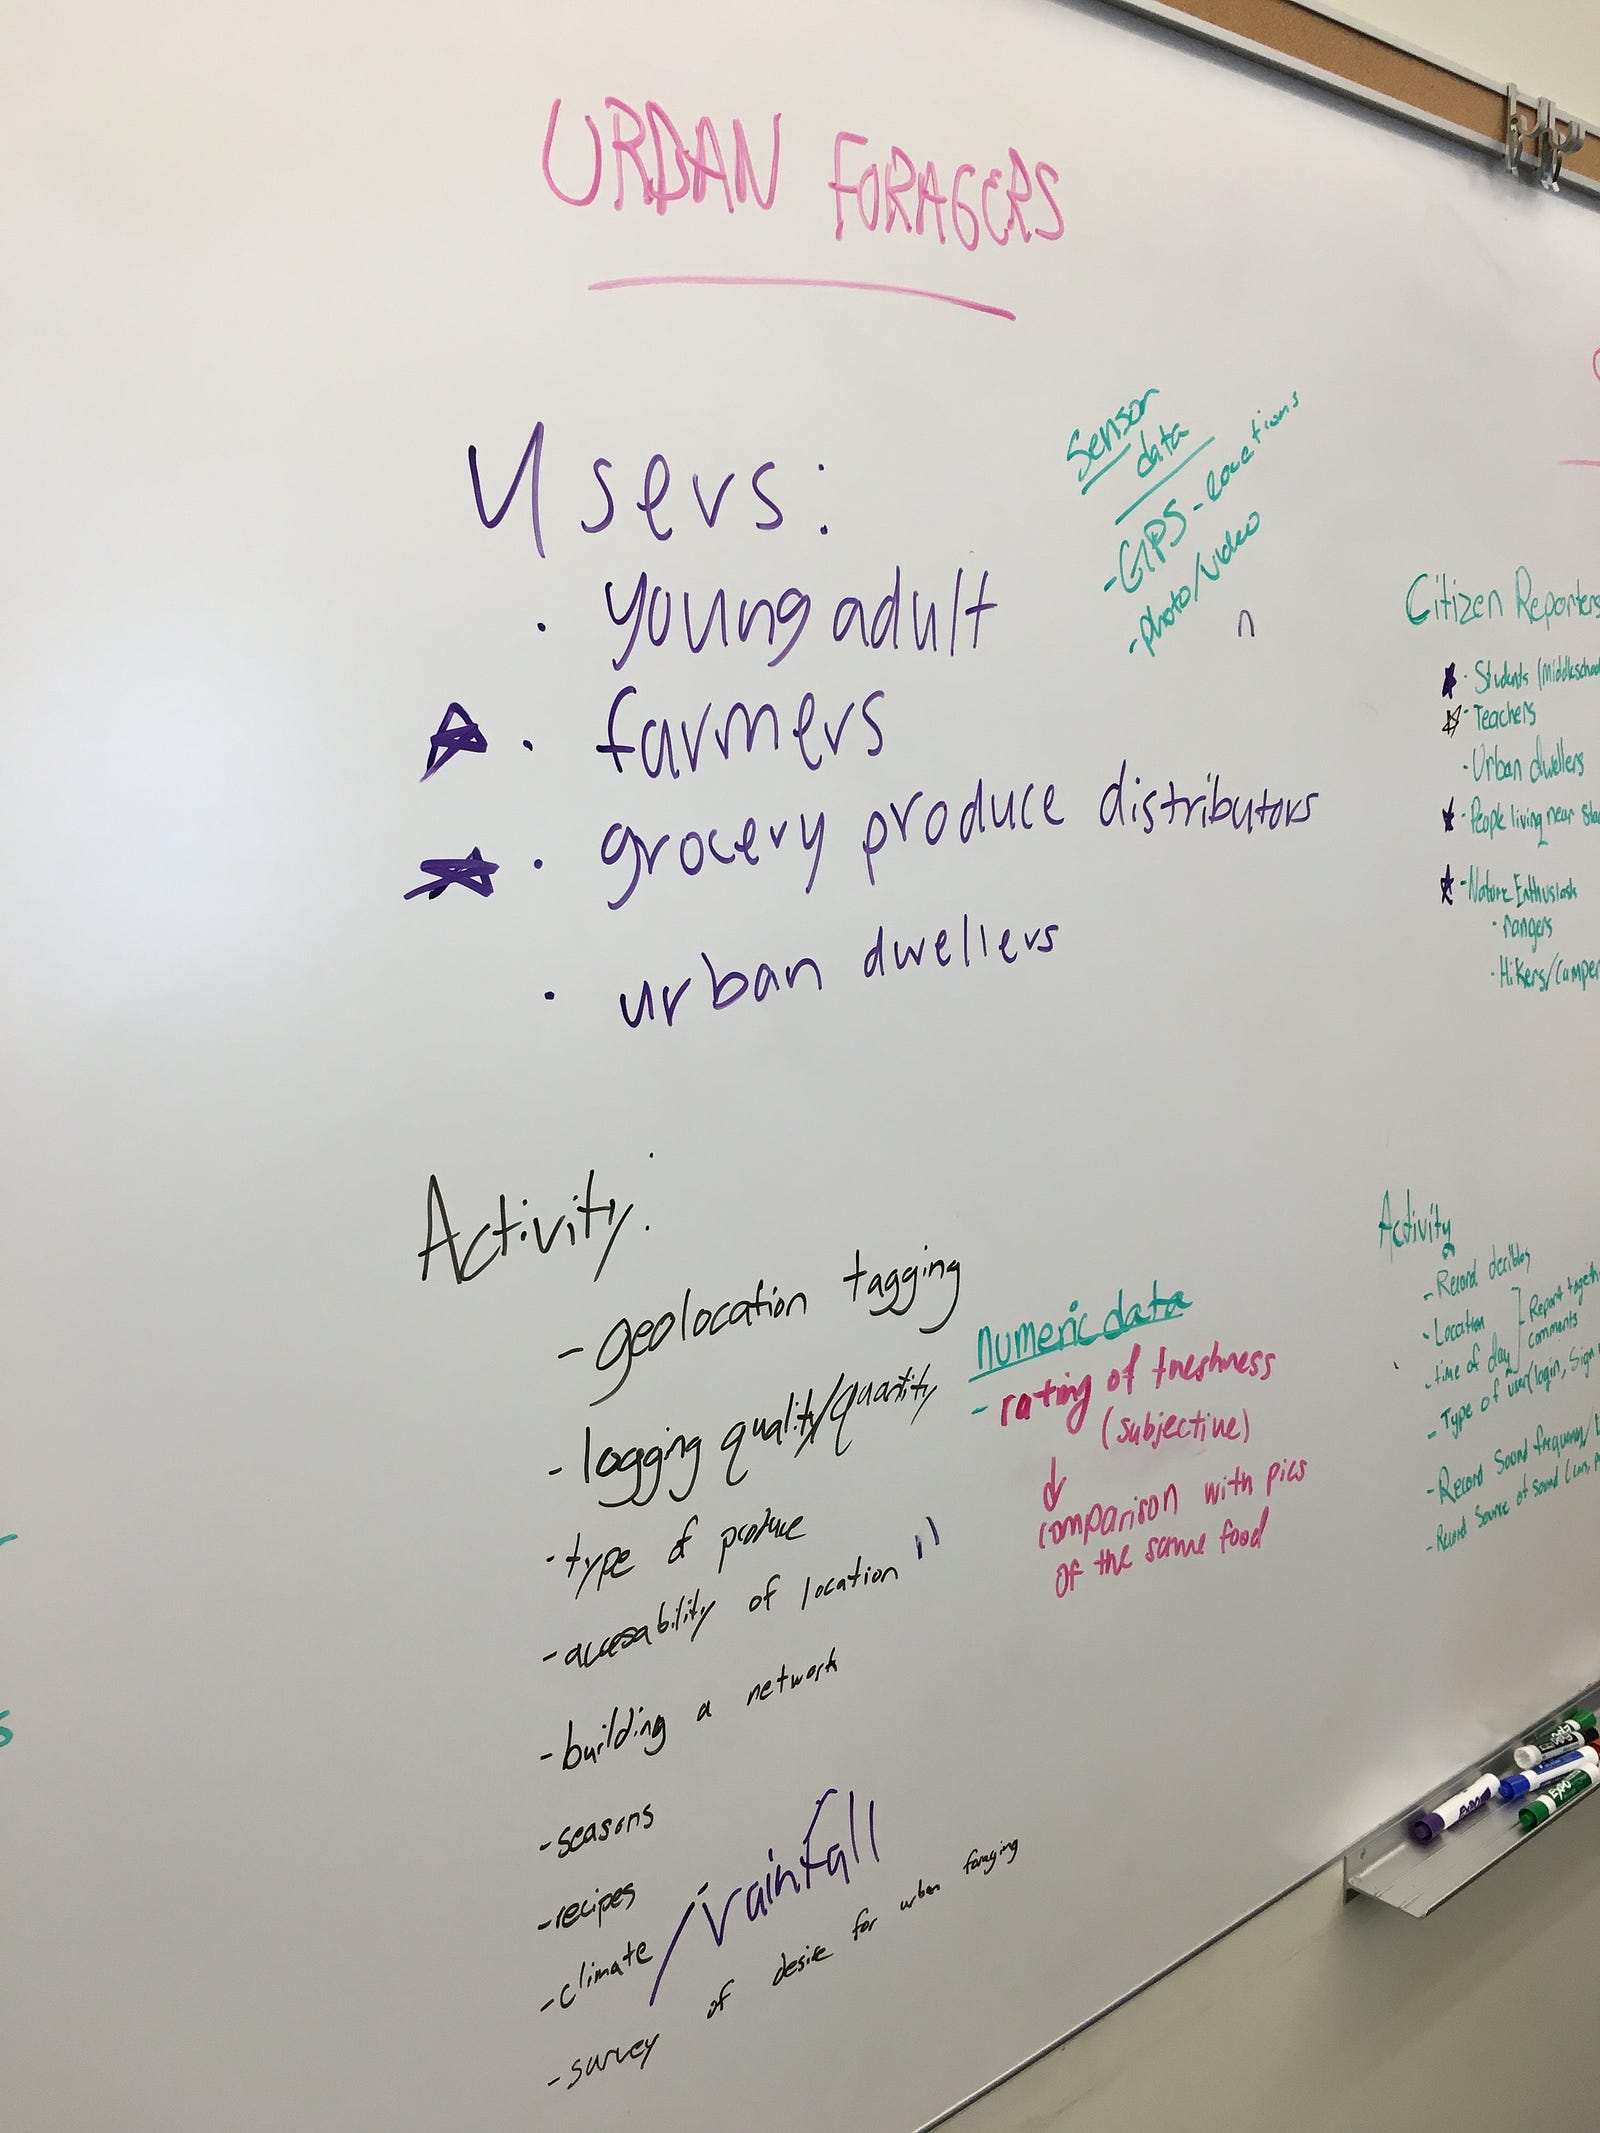 URBAN FORAGERS
Users:
· young adult
· farmers
· grocery produce distributors
· urban dwellers
Sensor
data
- GPS - locations
- photo/video
Activity:
- geolocation tagging
- logging quality/quantity
- type of produce
- accesability of location
- building a network
- seasons
- recipes
- climate /rainfall
- survey of desire for urban foraging
numeric data
- rating of freshness
(subjective)
comparison with pics
of the same food
Citizen Reporters
· Students (Middleschool
· Teachers
· Urban dwellers
· People living near
· Nature Enthusiasts
· rangers
· Hikers/Camper
Activity
- Record decibles
- Location
- time of day
Report together
comments
- Type of user (login, Sign
- Record Sound frequency/
- Record Source of sound (
EXPO
EXPO